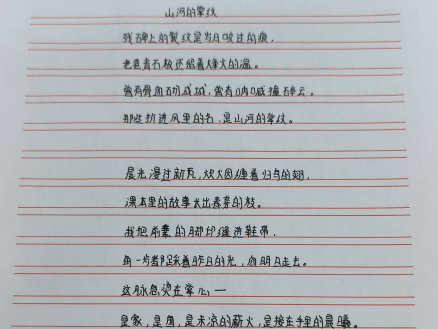 山河的掌纹
残碑上的裂纹是岁月咬过的痕，
老巷青石板还留着烽火的温。
曾有骨血砌成城，曾有呐喊撞碎云，
那些扔进风里的名，是山河的掌纹。
晨光漫过新瓦，炊火因缠着归鸟的翅，
课本里的故事长出春芽的枝。
我把前辈的脚印缝进鞋带，
每一步都踩着昨日的光，向明日走去。
这脉息烫在掌心—
是家，是国，是未凉的薪火，是接在手里的晨曦。